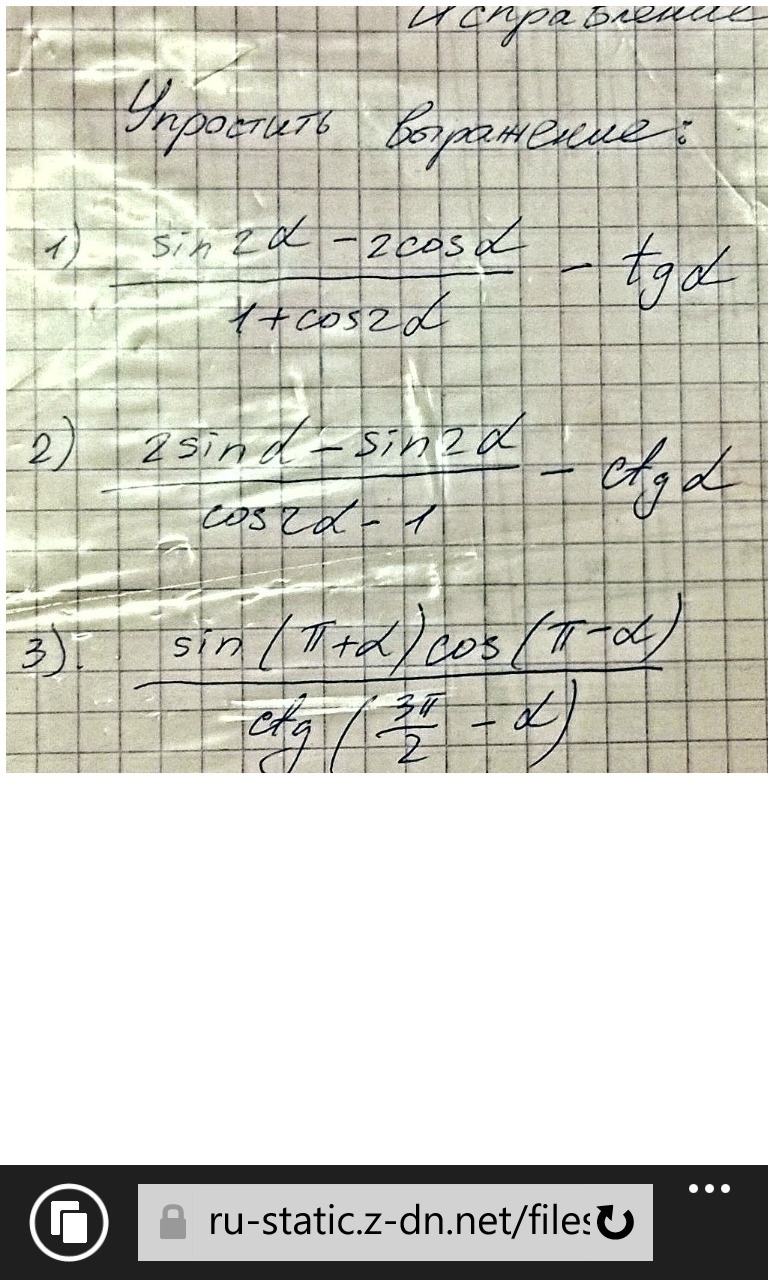 Исправление
Упростить выражение:
1) (sin 2α - 2cosα) / (1+cos2α) - tgα
2) (2sinα - sin2α) / (cos2α - 1) - ctgα
3). (sin(π+α)cos(π-α)) / (ctg(3π/2 - α))
ru-static.z-dn.net/files